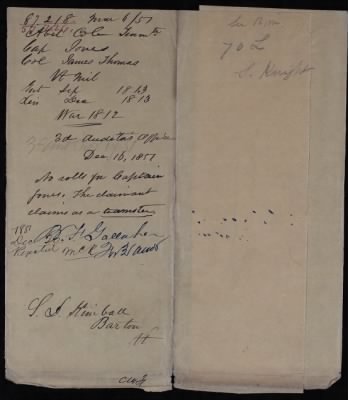 87.218 Mar 6/51
Abel Cole
Cap Jones
Col James Thomas
Vt Mil
Ent Sep 1813
Dis Dec 1813
War 1812
3d Auditors Office
Dec 10, 1851
No rolls for Captain
Jones. The claimant
claims as a teamster
1851
Dec
B. F. Gallaher
for 3d Aud
S. D. Kimball
Barton
Vt
70 L
S. Knight